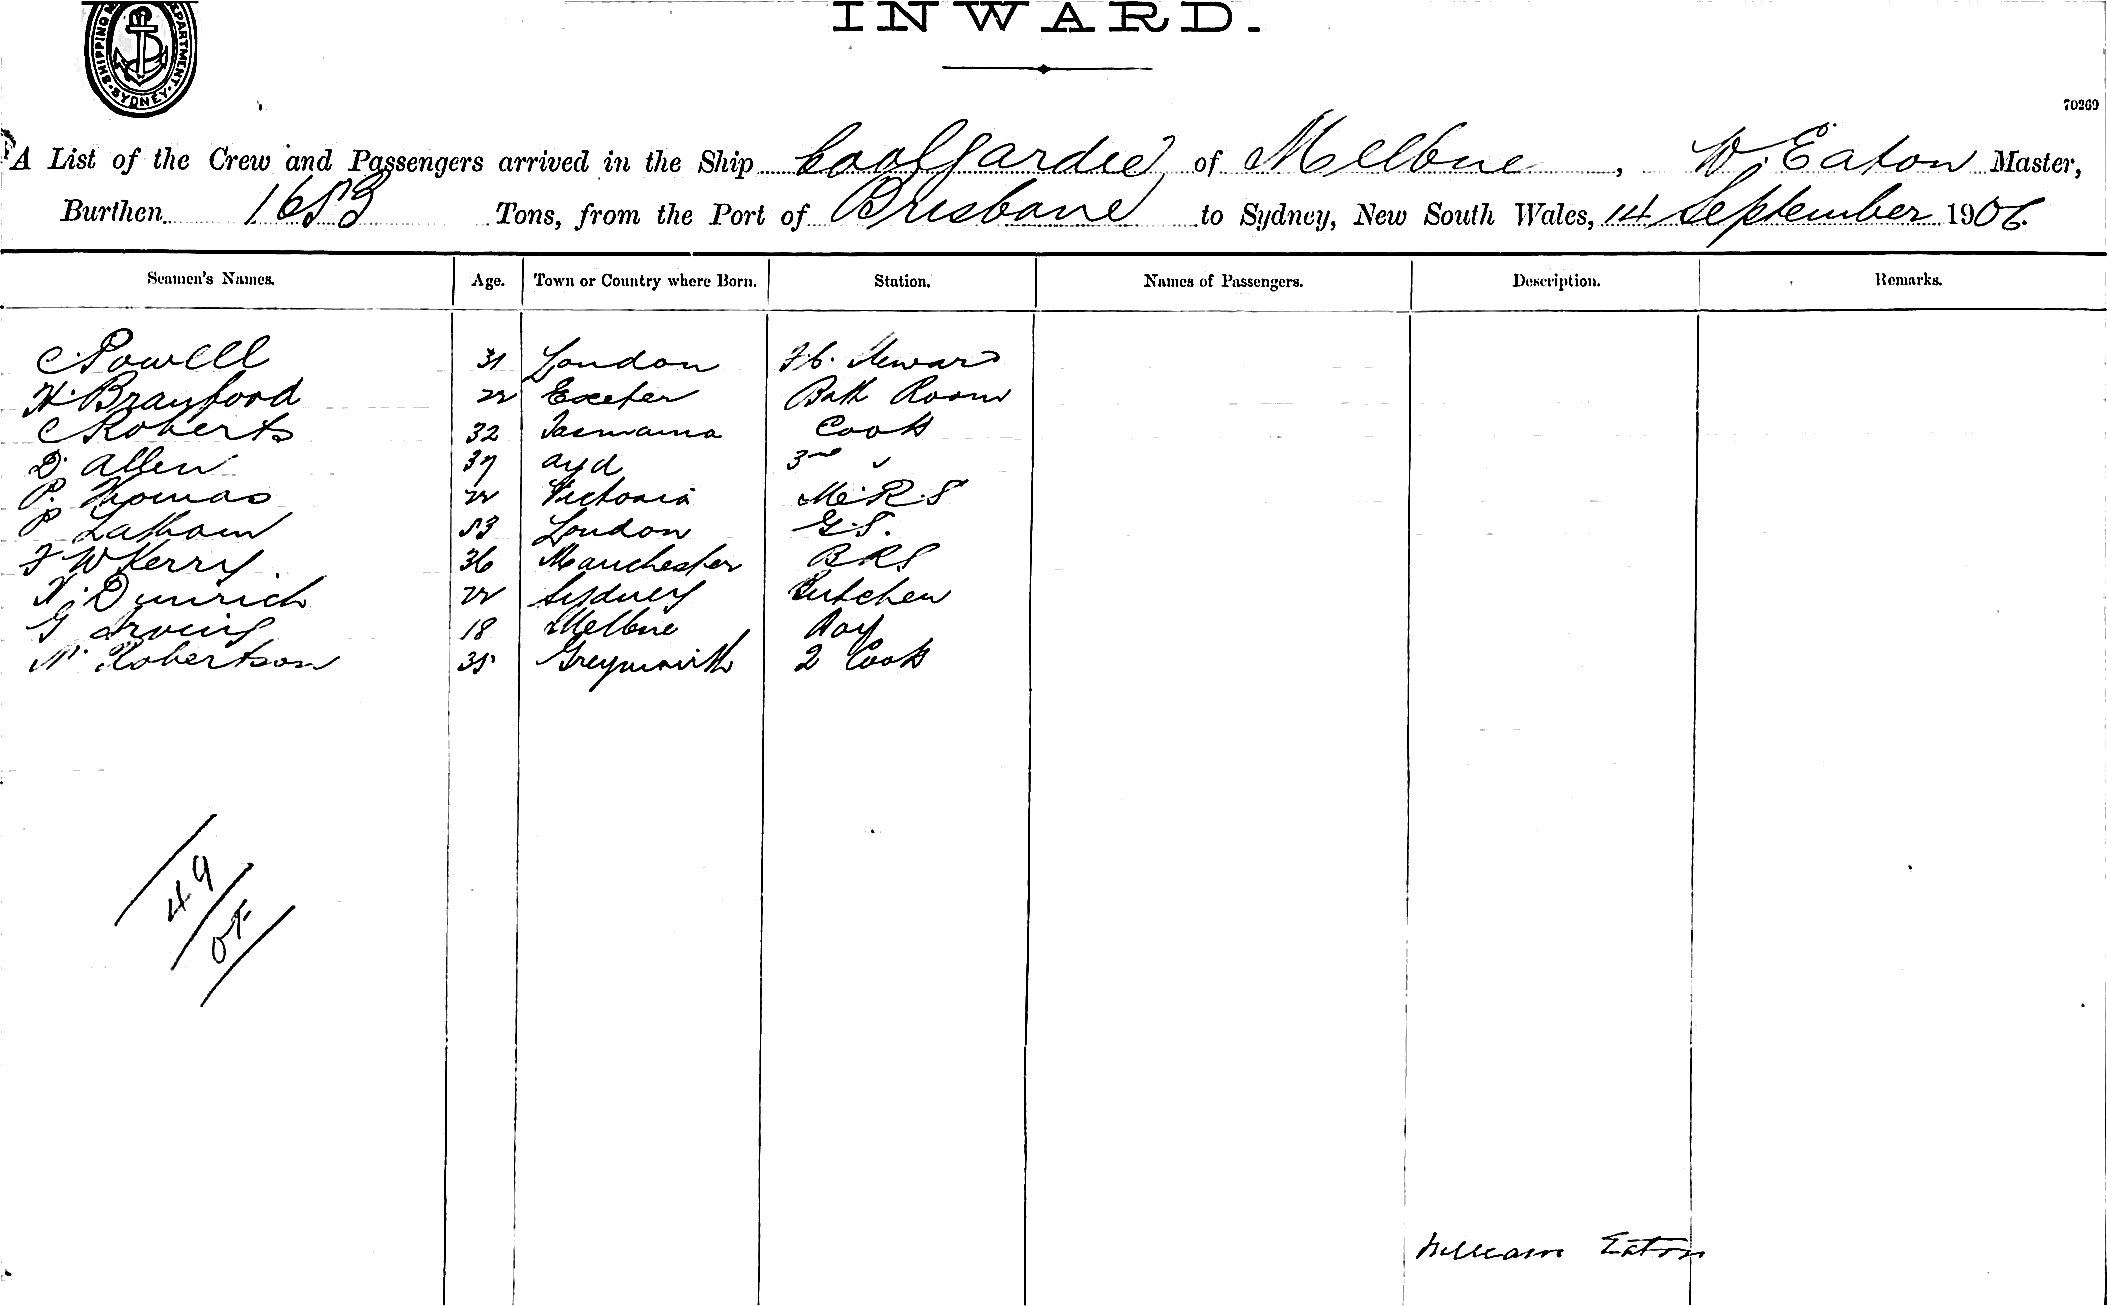 INWARD.
SHIPPING M PARTMENT SYDNEY
70269
A List of the Crew and Passengers arrived in the Ship Coolgardie of Melbne, W. Eaton Master,
Burthen 1653 Tons, from the Port of Brisbane to Sydney, New South Wales, 14 September 1906.
Seamen's Names. Age. Town or Country where Born. Station. Names of Passengers. Description. Remarks.
C Powell 31 London F.C. Steward
H. Brayford 22 Exeter Bath Room
C Roberts 32 Tasmania Cook
D. Allen 37 3rd
P. Thomas 22 Victoria M.R.S
P Latham 53 London G.S.
F W Kerry 36 Manchester B R S
22 Sydney
G Irving 18 Melbne Boy
N. Robertson 35 Greymouth 2 Cook
49
William Eaton